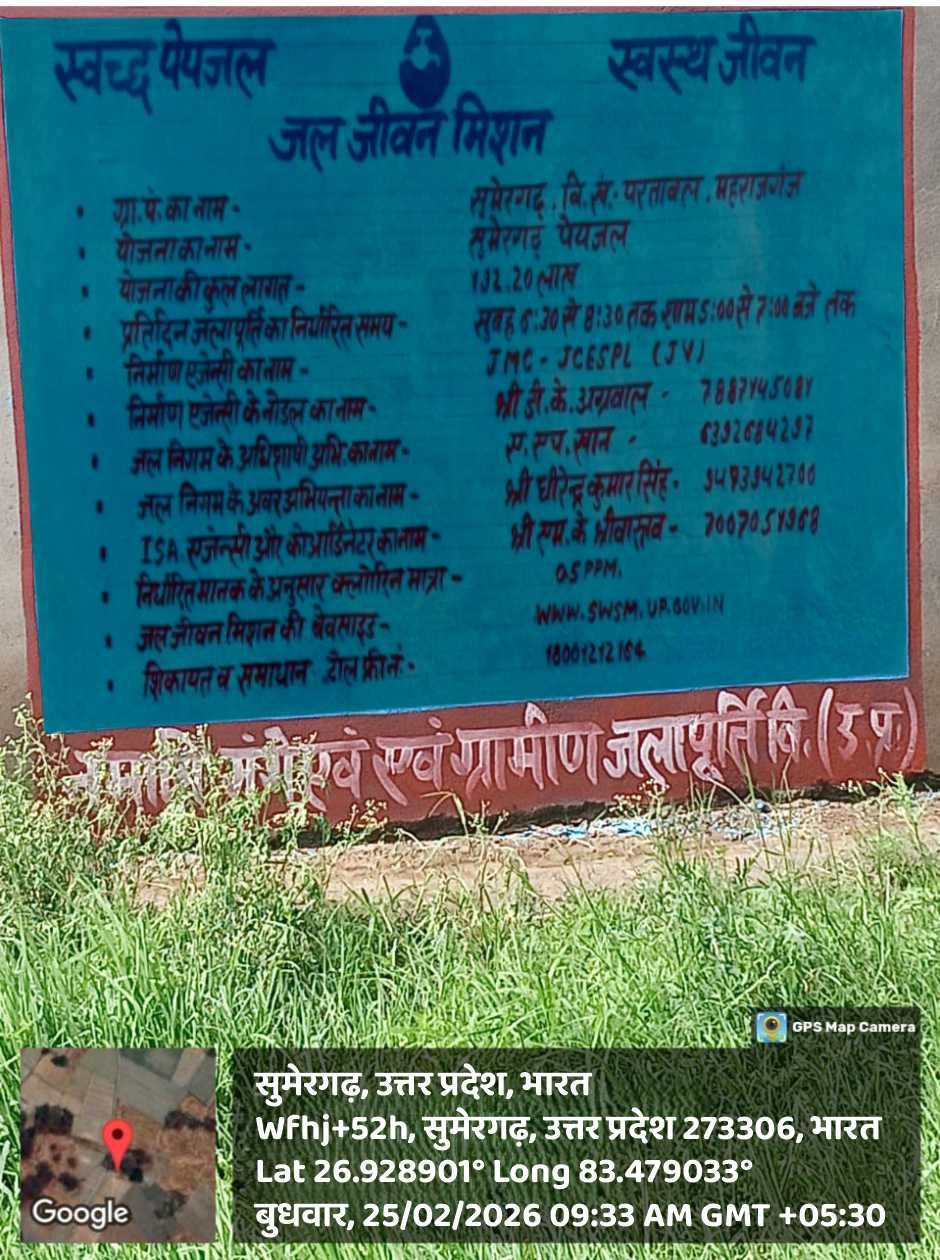 स्वच्छ पेयजल स्वस्थ जीवन
जल जीवन मिशन
• ग्रा.पं. का नाम - सुमेरगढ़, वि.ख.- परतावल, महराजगंज
• योजना का नाम - सुमेरगढ़ पेयजल
• योजना की कुल लागत - 132.20 लाख
• प्रतिदिन जलापूर्ति का निर्धारित समय - सुबह 6:30 से 8:30 तक शाम 5:00 से 7:00 बजे तक
• निर्माण एजेन्सी का नाम - JMC - JCESPL (JV)
• निर्माण एजेन्सी के नोडल का नाम - श्री डी.के. अग्रवाल -
• जल निगम के अधिशाषी अभि. का नाम - ए. एच. खान -
• जल निगम के अवर अभियन्ता का नाम - श्री धीरेन्द्र कुमार सिंह -
• ISA एजेन्सी और कोआर्डिनेटर का नाम - श्री एम.के श्रीवास्तव -
• निर्धारित मानक के अनुसार क्लोरिन मात्रा - 0.5 PPM.
• जल जीवन मिशन की वेबसाइड - WWW.SWSM.UP.GOV.IN
• शिकायत व समाधान टोल फ्री नं - 18001212164
नमामि गंगे एवं ग्रामीण जलापूर्ति वि. (उ.प्र.)
GPS Map Camera
सुमेरगढ़, उत्तर प्रदेश, भारत
Wfhj+52h, सुमेरगढ़, उत्तर प्रदेश 273306, भारत
Lat 26.928901° Long 83.479033°
बुधवार, 25/02/2026 09:33 AM GMT +05:30
Google